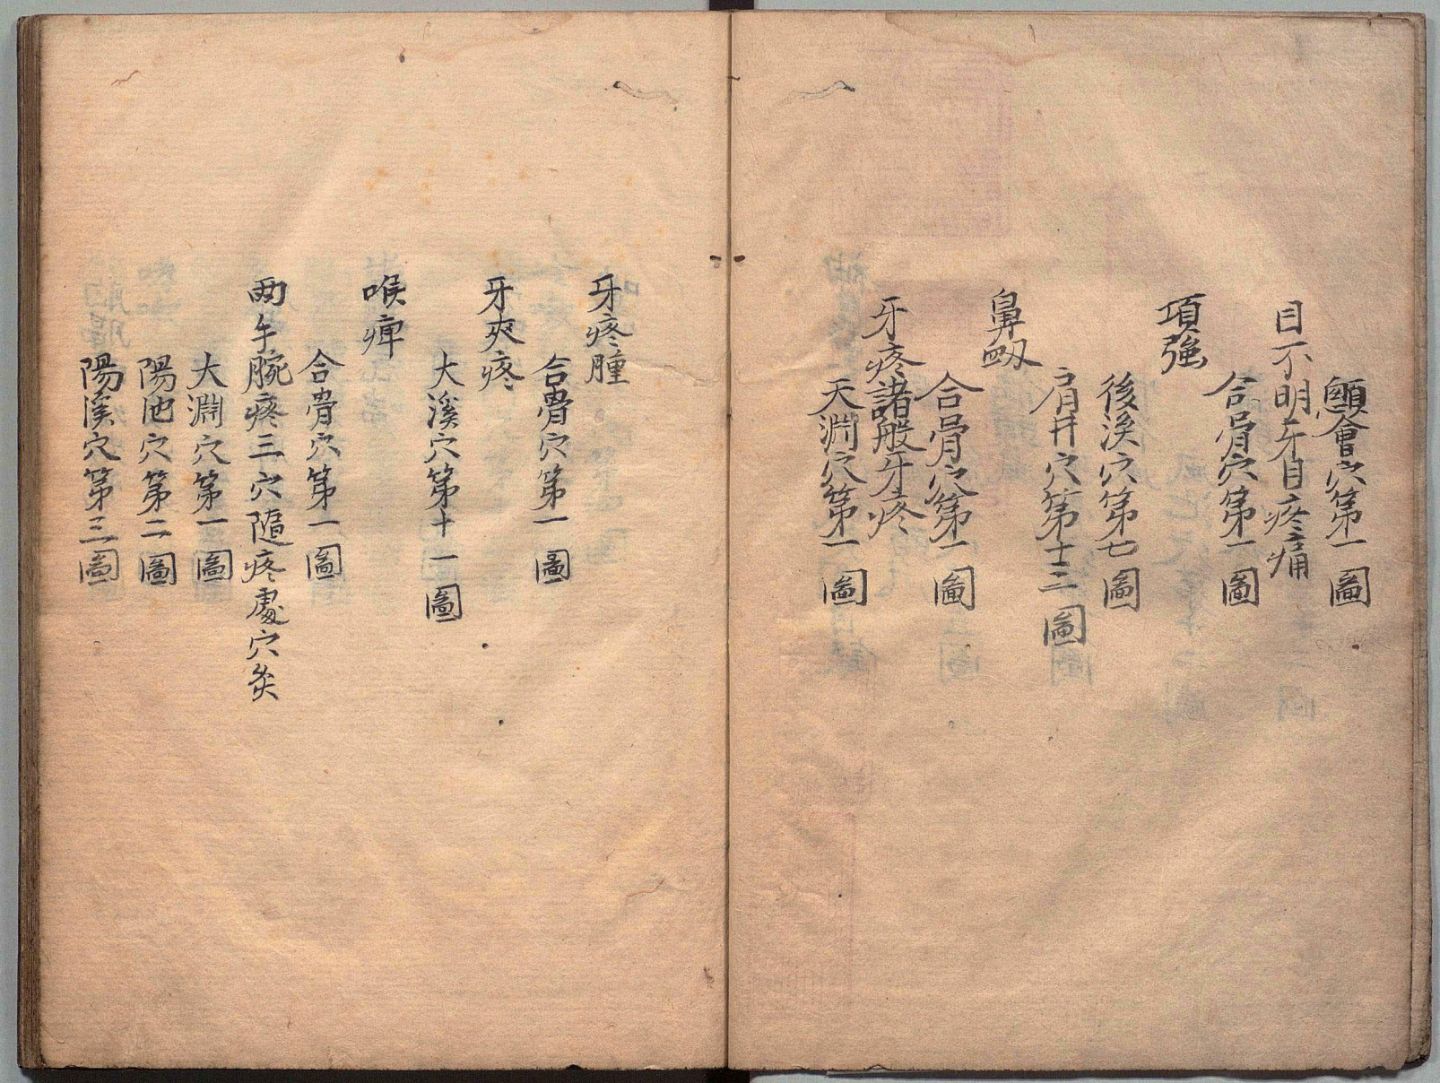 顖會穴第一圖
目不明牙目疼痛
合骨穴第一圖
項強
後溪穴第七圖
肩井穴第十三圖
鼻衂
合骨穴第一圖
牙疼諸般牙疼
天淵穴第一圖
牙疼腫
合骨穴第一圖
牙爽疼
大溪穴第十一圖
喉痺
合骨穴第一圖
兩手腕疼三穴隨疼處穴灸
大淵穴第一圖
陽池穴第二圖
陽溪穴第三圖